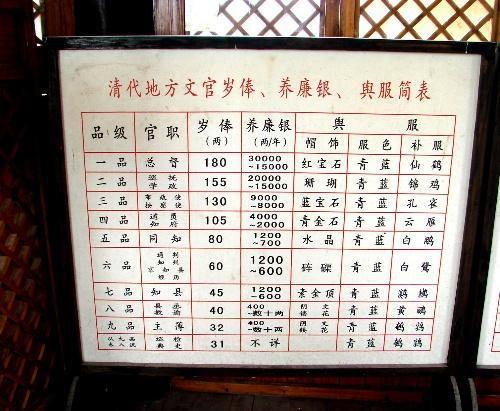 清代地方文官岁俸、养廉银、舆服简表
品级 官职 岁俸(两) 养廉银(两/年) 舆服
帽饰 服色 补服
一品 总督 180 30000~15000 红宝石 青蓝 仙鹤
二品 巡抚 学政 155 20000~15000 珊瑚 青蓝 锦鸡
三品 布政使 按察使 130 9000~8000 蓝宝石 青蓝 孔雀
四品 道员 知府 105 4000~2000 青金石 青蓝 云雁
五品 同知 80 1200~700 水晶 青蓝 白鹇
六品 通判 知州 京知县 经历 60 1200~600 砗磲 青蓝 白鹭
七品 知县 45 1200~600 素金顶 青蓝 鸂鶒
八品 县丞 教谕 40 400~数十两 阴文镂花 青蓝 黄鹂
九品 主簿 32 400~数十两 阴文镂花 青蓝 鹌鹑
从九品 未入流 巡检 典史 31 不详 青蓝 鹌鹑